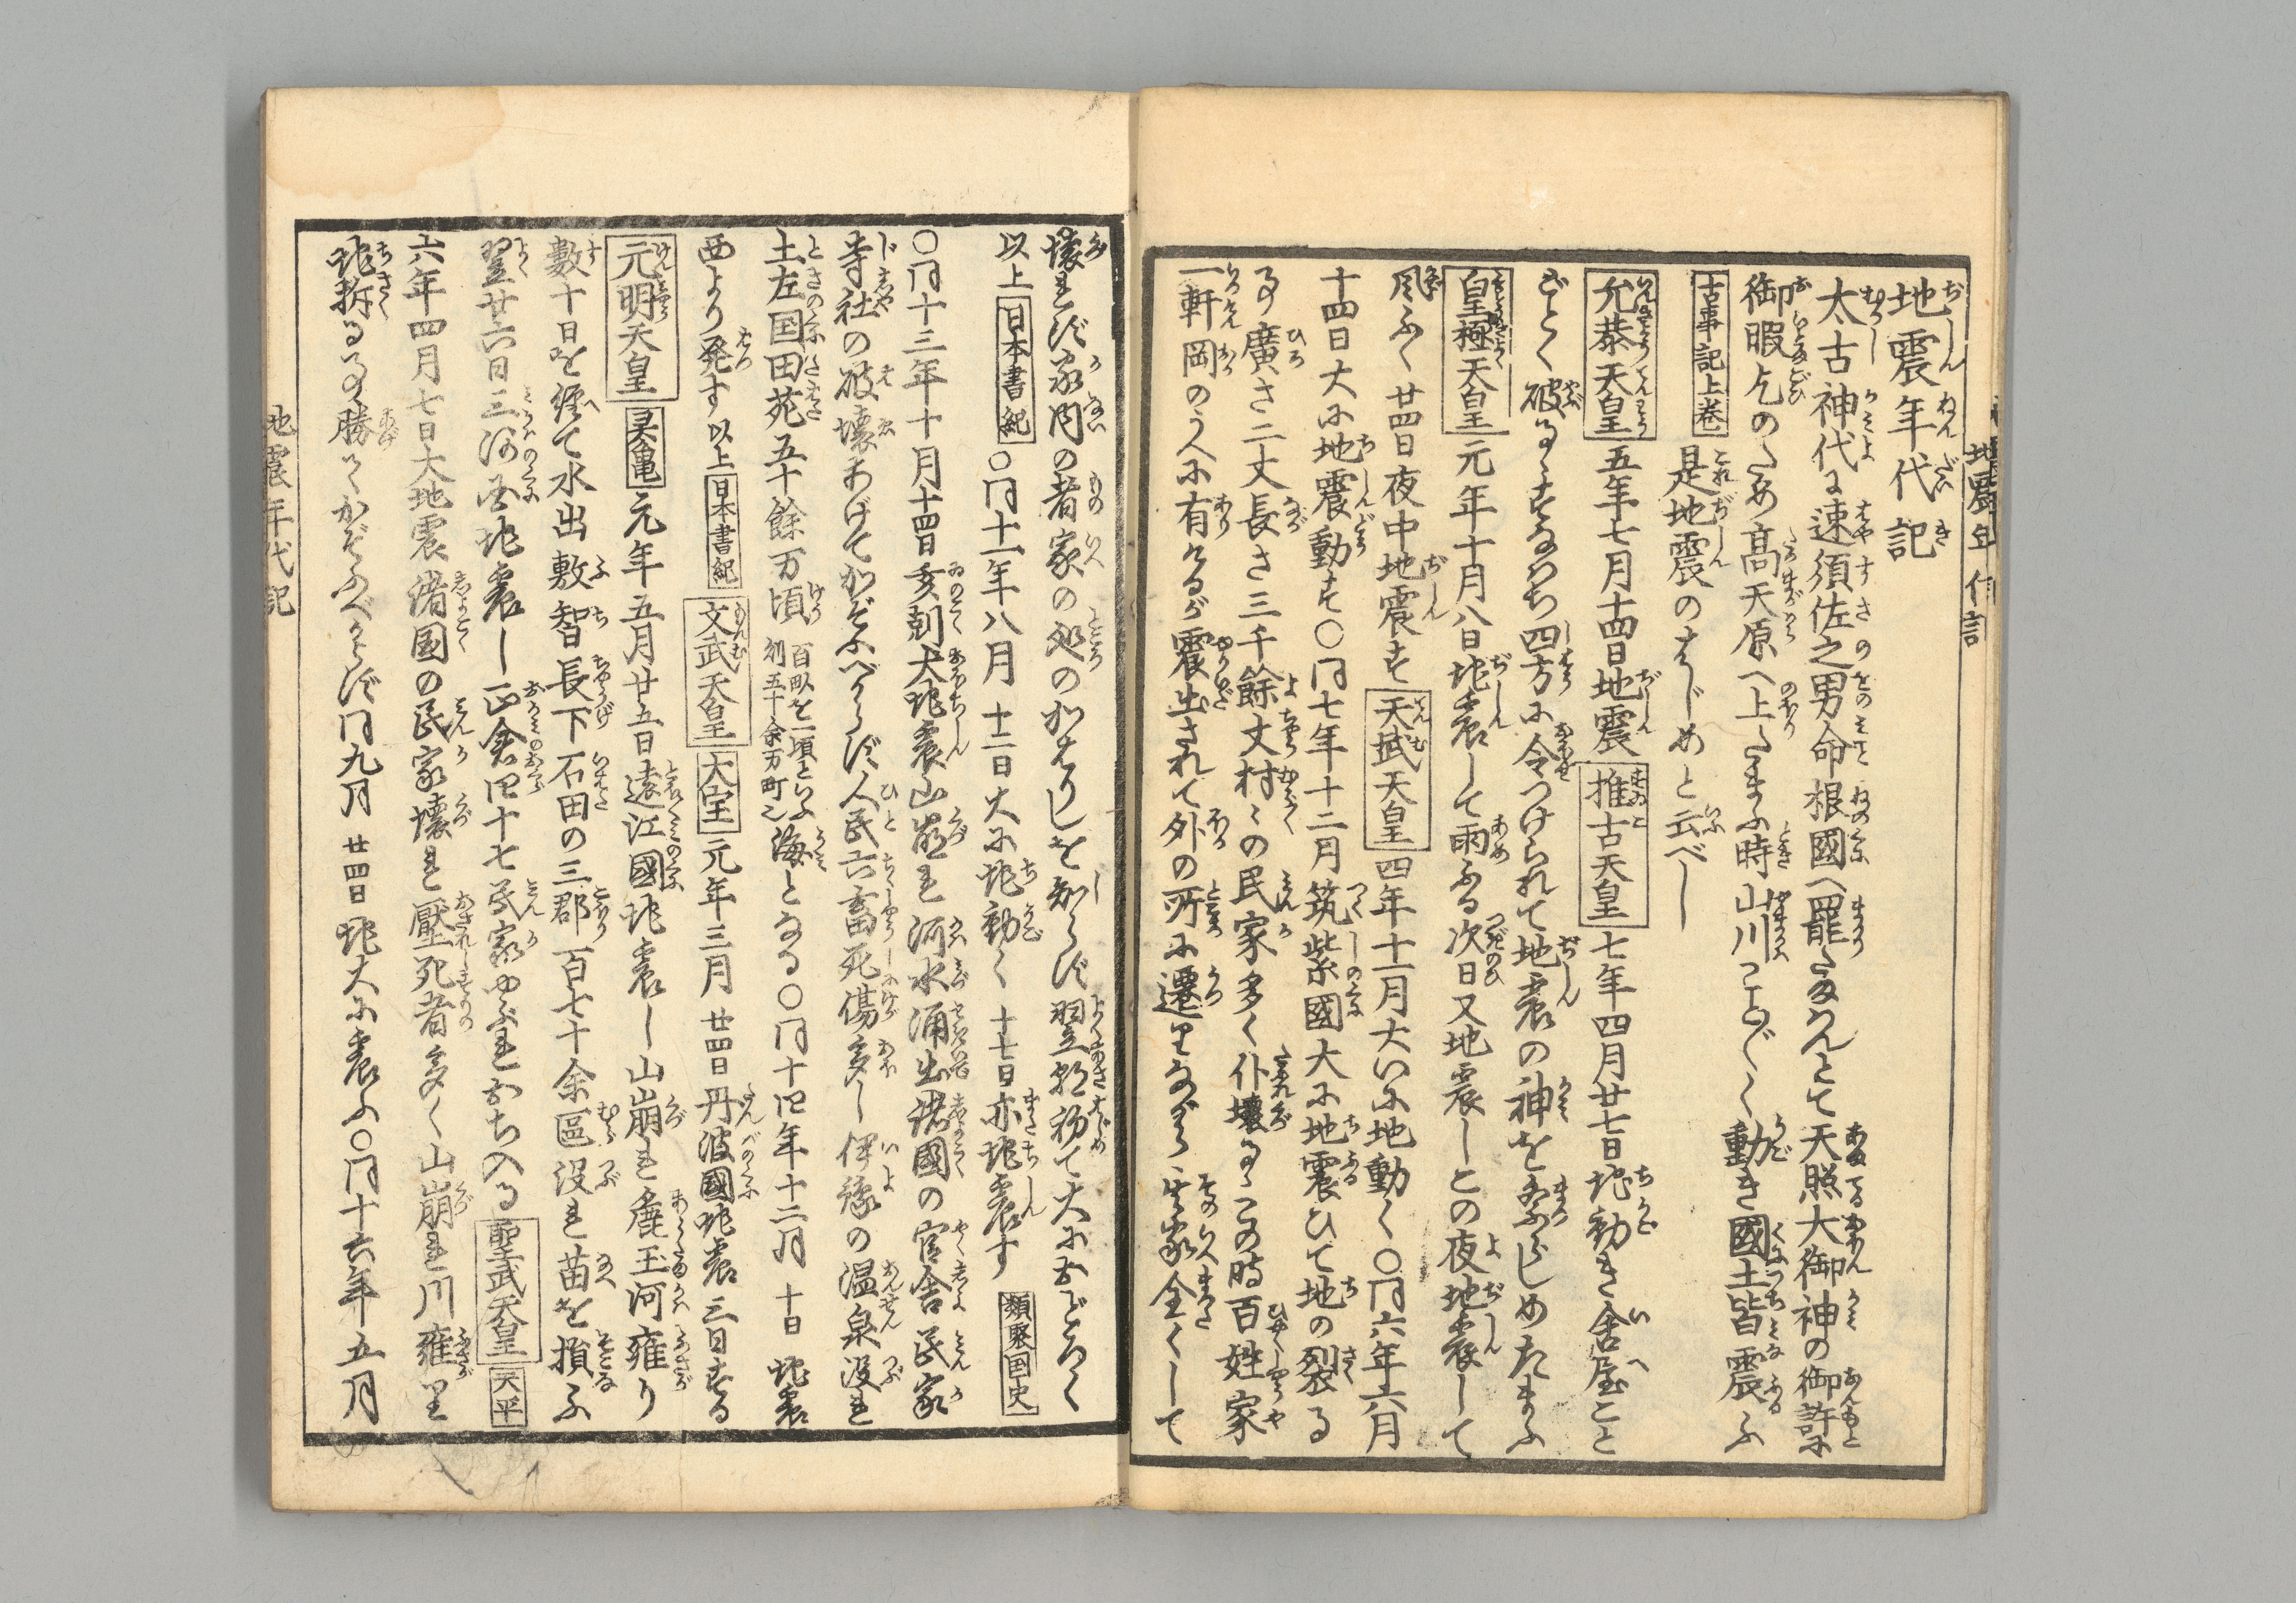 地震年代記
太古神代に速須佐之男命根國へ罷たまわんとて天照大御神の御許に
御暇乞のため高天原へ上たまふ時山川こと〴〵く動き國土皆震ふ
古事記上卷　是地震のはじめと云べし
允恭天皇　五年七月十四日地震　推古天皇　七年四月廿七日地動き舎屋こと
ごとく破るすなわち四方に令つけられて地震の神を祭らしめたまふ
皇極天皇　元年十月八日地震して雨ふる次日又地震しこの夜地震して
風ふく廿四日夜中地震す　天武天皇　四年十一月大いに地動く〇同六年六月
十四日大に地震動す〇同七年十二月筑紫國大に地震ひて地の裂る
事廣さ二丈長さ三千餘丈村々の民家多く仆壞るこの時百姓家
一軒岡のうへに有けるが震出されて外の所に遷りながら其家全くして
壞れず家内の者家の処のかはりしを知らず翌朝初て大におどろく
以上　日本書紀　〇同十一年八月十二日大に地動く十七日亦地震す　類聚国史
〇同十三年十月十四日亥剋大地震山崩れ河水涌出諸國の官舎民家
寺社の破壊あげてかぞふべからず人民六畜死傷多し伊豫の温泉没れ
土左国田苑五十餘万頃　百畝を一頃といふ則五十余万町也　海となる〇同十四年十二月十日地震
西より発す以上　日本書紀　文武天皇　大宝　元年三月廿四日丹波國地震三日する
元明天皇　灵亀　元年五月廿五日遠江國地震し山崩れ麁玉河雍り
數十日を經て水出敷智長下石田の三郡百七十余區没れ苗を損ふ
翌廿六日三河国地震し正倉四十七民家ゆぶれおち入る　聖武天皇　天平
六年四月七日大地震諸国の民家壊れ壓死者多く山崩れ川雍り
地拆る事勝てかぞふべからず同九月廿四日地大に震ふ〇同十六年五月
地震年代記